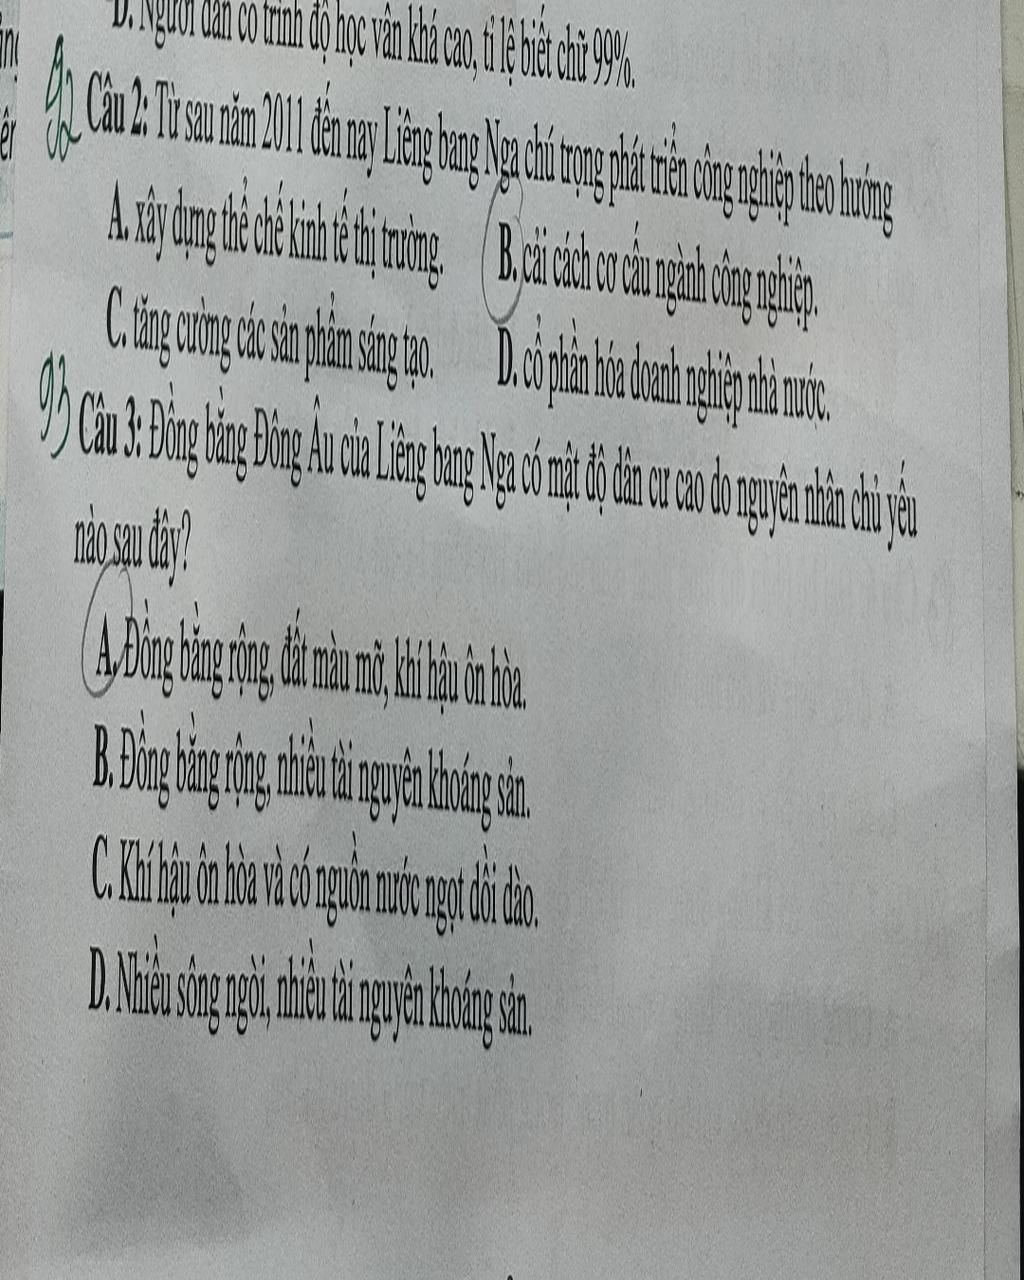 D. Người dân có trình độ học vấn khá cao, tỉ lệ biết chữ 99%.
92 Câu 2: Từ sau năm 2011 đến nay Liêng bang Nga chú trọng phát triển công nghiệp theo hướng
A. xây dựng thể chế kinh tế thị trường. B. cải cách cơ cấu ngành công nghiệp.
C. tăng cường các sản phẩm sáng tạo. D. cổ phần hóa doanh nghiệp nhà nước.
93 Câu 3: Đồng bằng Đông Âu của Liêng bang Nga có mật độ dân cư cao do nguyên nhân chủ yếu
nào sau đây?
A. Đồng bằng rộng, đất màu mỡ, khí hậu ôn hòa.
B. Đồng bằng rộng, nhiều tài nguyên khoáng sản.
C. Khí hậu ôn hòa và có nguồn nước ngọt dồi dào.
D. Nhiều sông ngòi, nhiều tài nguyên khoáng sản.